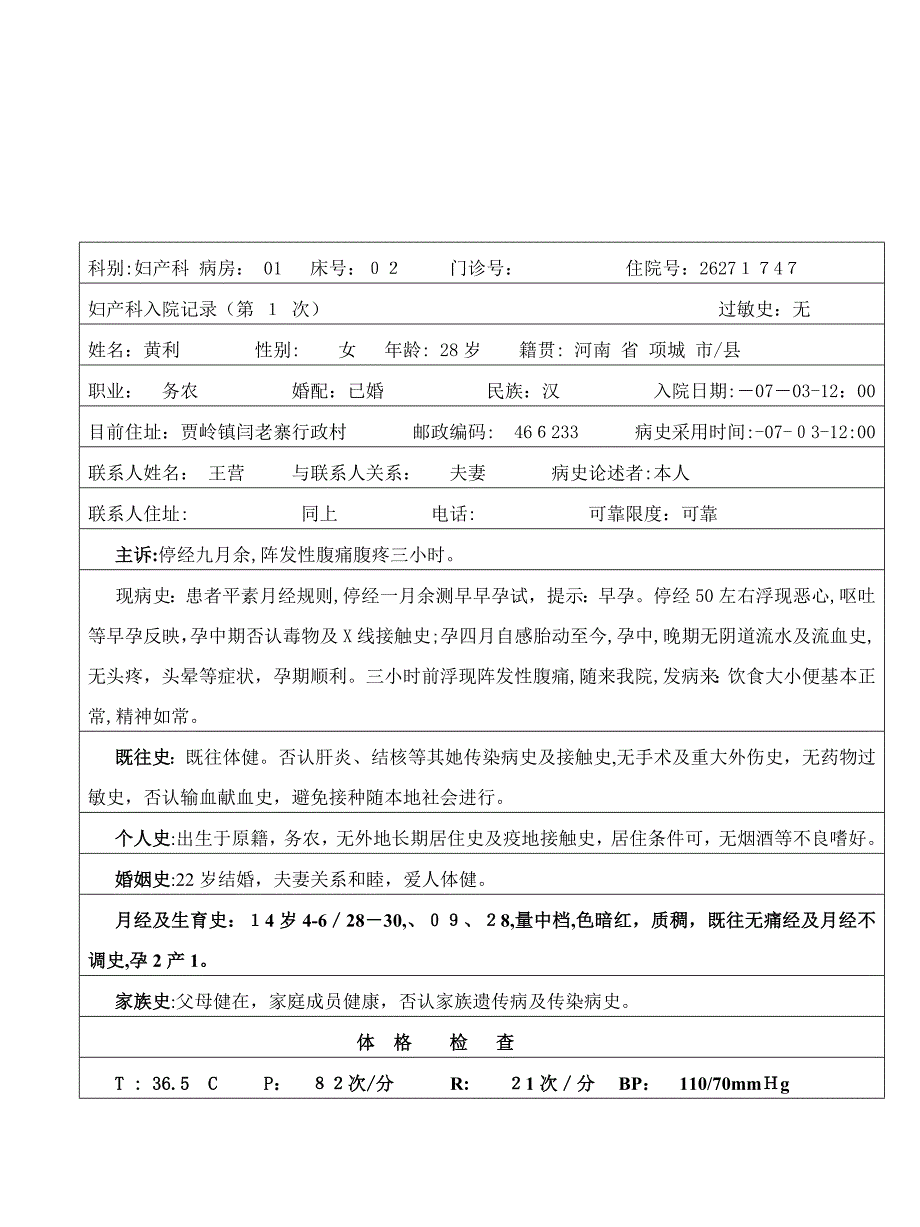 科别:妇产科 病房： 01 床号：０２ 门诊号： 住院号：2627１７４７
妇产科入院记录（第 １ 次） 过敏史：无
姓名：黄利 性别: 女 年龄: 28岁 籍贯: 河南 省 项城 市/县
职业： 务农 婚配：已婚 民族：汉 入院日期:－07－03-12：00
目前住址：贾岭镇闫老寨行政村 邮政编码: 46６233 病史采用时间:-07-０3-12:00
联系人姓名： 王营 与联系人关系： 夫妻 病史论述者:本人
联系人住址: 同上 电话: 可靠限度：可靠
主诉:停经九月余,阵发性腹痛腹疼三小时。
现病史：患者平素月经规则,停经一月余测早早孕试，提示：早孕。停经50左右浮现恶心,呕吐
等早孕反映,孕中期否认毒物及X线接触史;孕四月自感胎动至今,孕中,晚期无阴道流水及流血史,
无头疼，头晕等症状，孕期顺利。三小时前浮现阵发性腹痛,随来我院,发病来：饮食大小便基本正
常,精神如常。
既往史：既往体健。否认肝炎、结核等其她传染病史及接触史,无手术及重大外伤史，无药物过
敏史，否认输血献血史，避免接种随本地社会进行。
个人史:出生于原籍，务农，无外地长期居住史及疫地接触史，居住条件可，无烟酒等不良嗜好。
婚姻史:22岁结婚，夫妻关系和睦，爱人体健。
月经及生育史：１4岁4-6／28－30,、０９、２8,量中档,色暗红，质稠，既往无痛经及月经不
调史,孕2产1。
家族史:父母健在，家庭成员健康，否认家族遗传病及传染病史。
体 格 检 查
T : 36.5 C P： ８２次/分 R: ２1次／分 BP： 110/70mmＨg